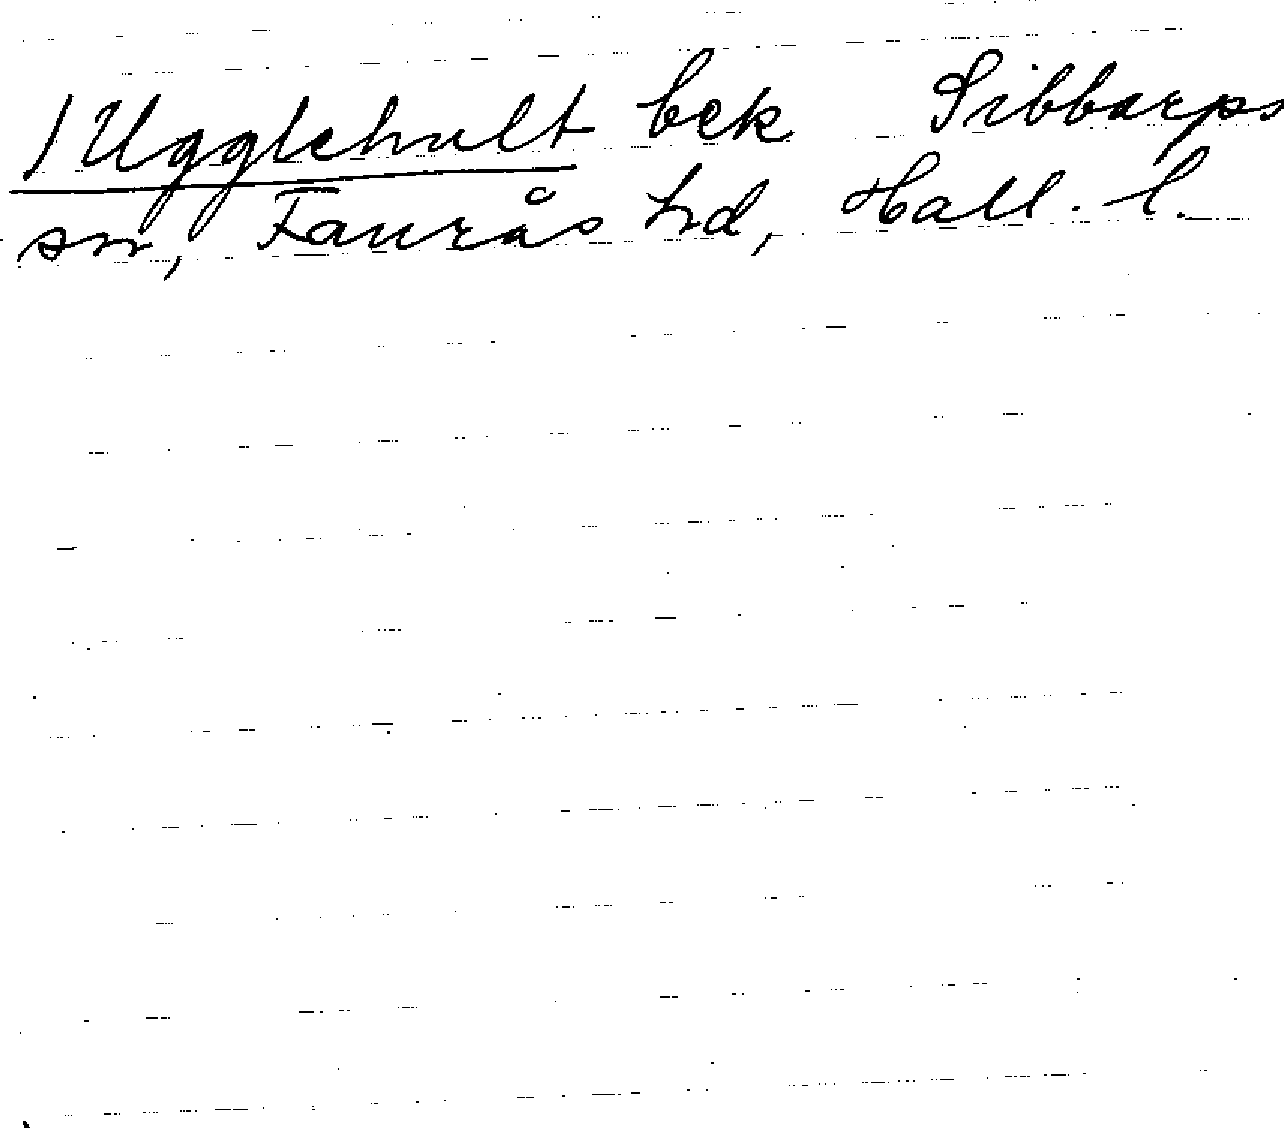 /Ugglehult bek Sibbarps
sn, Faurås hd, Hall. l.